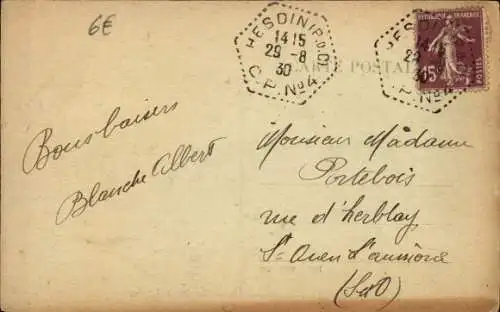 6€
HESDIN (P. D. C.)
14 15
29 - 8
30
C.P. No 4
REPUBLIQUE FRANÇAISE
15
POSTES
CARTE POSTALE
Bons baisers
Blanche Albert
Monsieur Madame
Portebois
rue d'herblay
St Ouen L'aumone
(S&O)